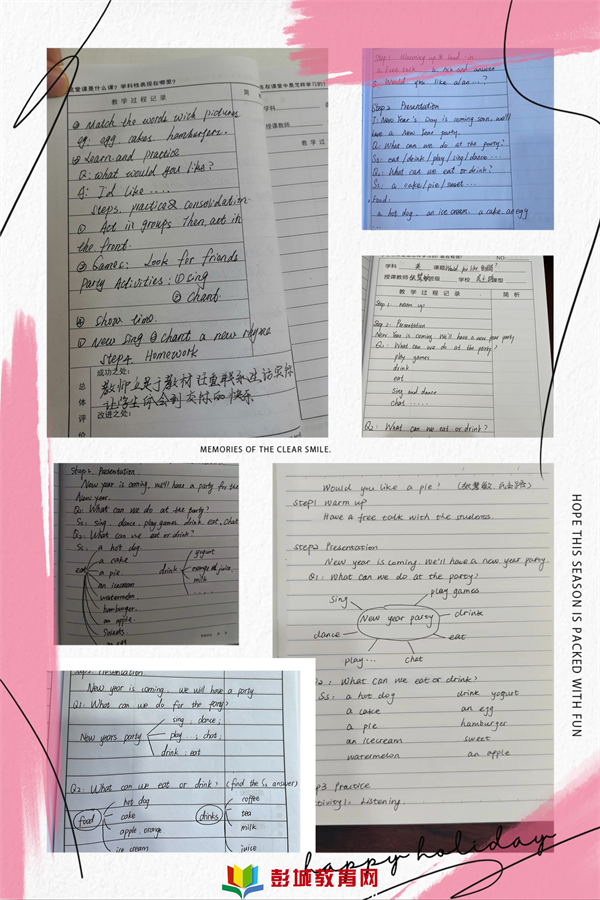 堂课是什么课？学科性表现在哪里？
教学过程记录
简
② Match the words with pictures
eg: egg. cakes hamburgers.
③ Learn and practice
Q: what would you like?
A: I'd like ....
Step3. practice & consolidation
① Act in groups Then, act in
the front.
② Games: Look for friends
Party Activities: ① sing
② chant.
④ Show time.
⑤ New sing & chant a new rhyme
Step4. Homework
成功之处:
总
体
评
价
改进之处:
在课堂中是怎样学习的?
学科
授课教师
教学过
Step1 Warming up & lead in
a Free talk
Would you like a/an...?
Step2 Presentation
T: New Year's Day is coming soon, we'll
have a New Year party.
Q: What can we do at the party?
Ss: eat/drink/play/sing/dance...
Q: What can we eat or drink?
Ss: a cake/pie/sweet...
Food:
a hot dog. an ice cream. a cake. an egg
NO
学科 英 课题 Would you like a pie?
授课教师 班级 学校 课型
教学过程记录
简析
Step1: warm up
Step2: Presentation
New Year is coming. We'll have a new year party.
Q1: What can we do at the party?
play games
drink
eat
sing and dance
chat ......
Q2: What can we eat or drink?
MEMORIES OF THE CLEAR SMILE.
HOPE THIS SEASON IS PACKED WITH FUN
Step2 Presentation
New year is coming, we'll have a party for the
New year.
Q1: What can we do at the party?
Ss: sing, dance, play games, drink, eat, chat
Q2: What can we eat or drink?
Ss: a hot dog.
a cake
eat a pie
an icecream
watermelon
hamburger
an apple
sweets
an egg
drink yogurt
orange juice
milk
.....
Would you like a pie?
Step1 Warm up
Have a free talk with the students.
step2 Presentation
New year is coming. We'll have a new year party.
Q1: What can we do at the party?
sing
play games
New year party
drink
dance
eat
play...
chat
Q2: What can we eat or drink?
Ss: a hot dog drink yogurt
a cake an egg
a pie hamburger
an icecream sweet
watermelon an apple
step3 Practice
Activity1: Listening.
Step2 Presentation
New Year is coming. we will have a party
Q1: What can we do for the party?
sing; dance;
New years party play; chat;
drink; eat
Q2: What can we eat or drink? (find the Ss answer)
food hot dog
cake
apple orange
ice cream
drinks coffee
tea
milk
juice
happy holiday
彭城教育网